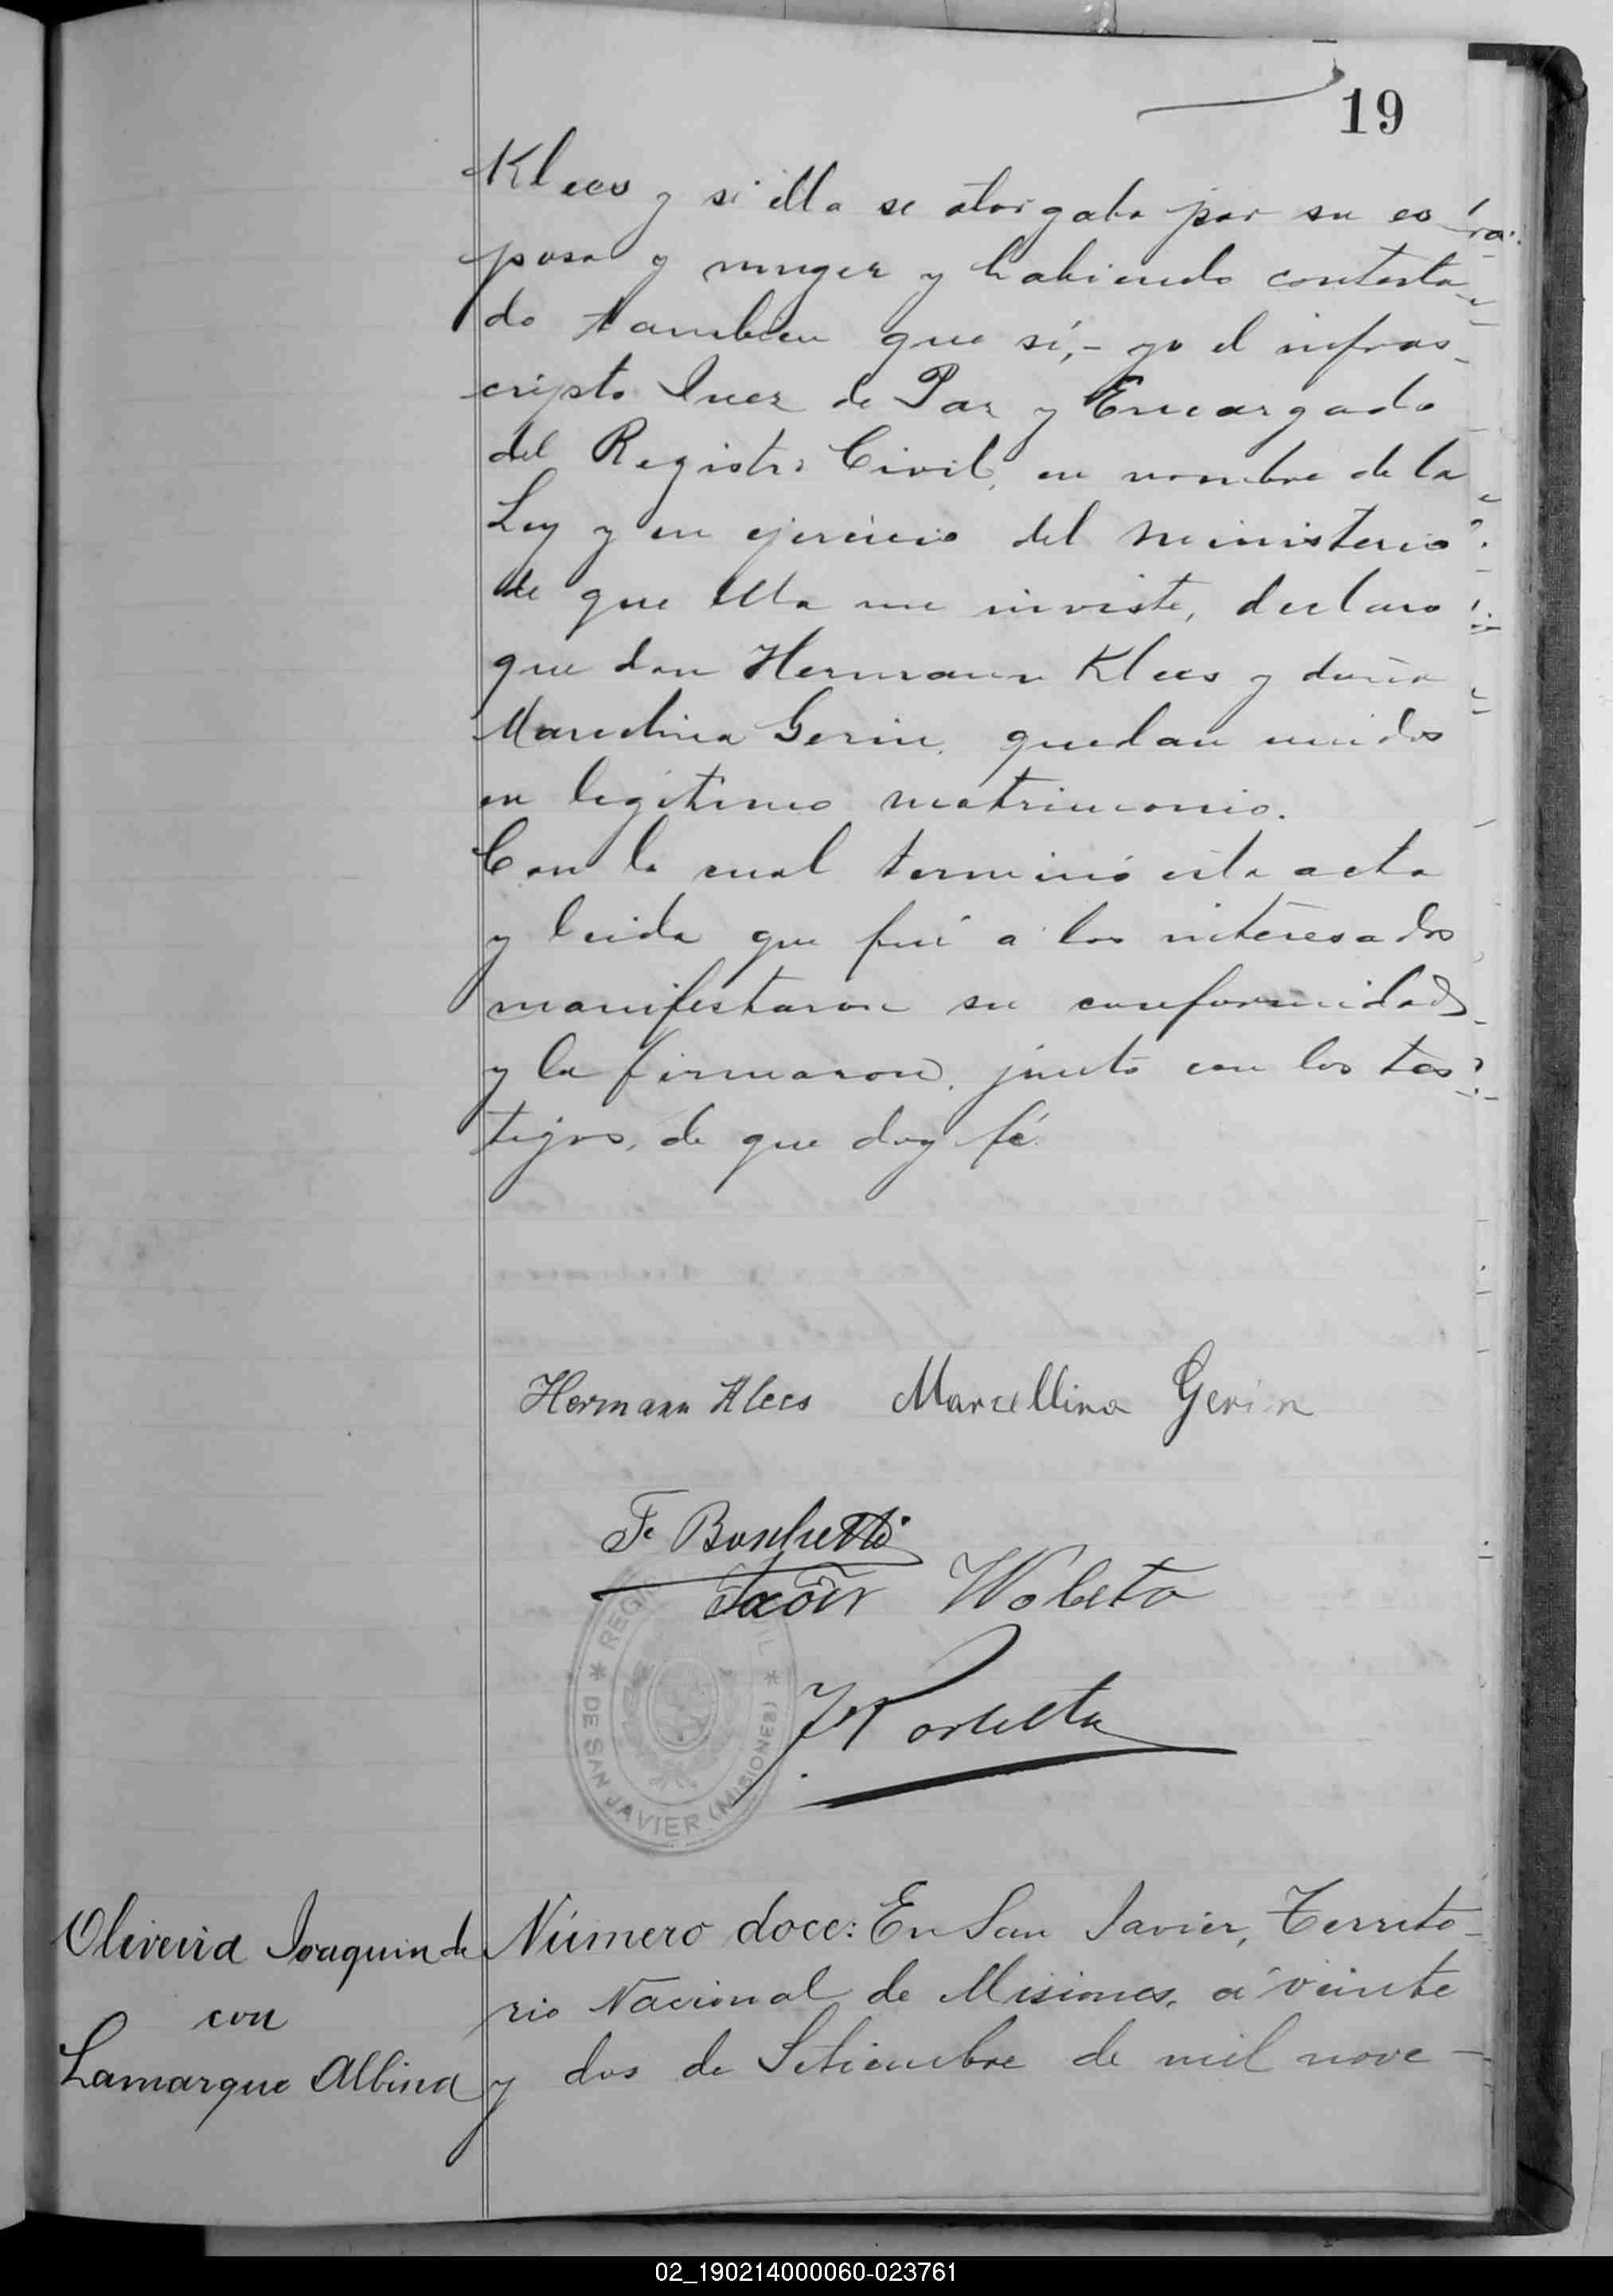 19
Klees y si ella se otorgaba por su es
posa y muger y habiendo contesta
do tambien que sí,- yo el infras_
cripto Juez de Paz y Encargado
del Registro Civil, en nombre de la
Ley y en ejercicio del ministerio
de que ella me inviste, declaro
que don Hermann Klees y doña
Marcelina Gerin, quedan unidos
en legítimo matrimonio.
Con lo cual terminó esta acta
y leida que fué a los interesados
manifestaron su conformidad
y la firmaron, junto con los tes
tigos, de que doy fé.
Hermann Klees Marcellina Gerin
F. Boschetti
Wobeto
REGI IL
DE SAN JAVIER (MISIONES)
Oliveira Joaquin de
con
Lamarque Albina
Número doce: En San Javier, Territo-
rio Nacional de Misiones, a veinte
y dos de Setiembre de mil nove-
02_190214000060-023761